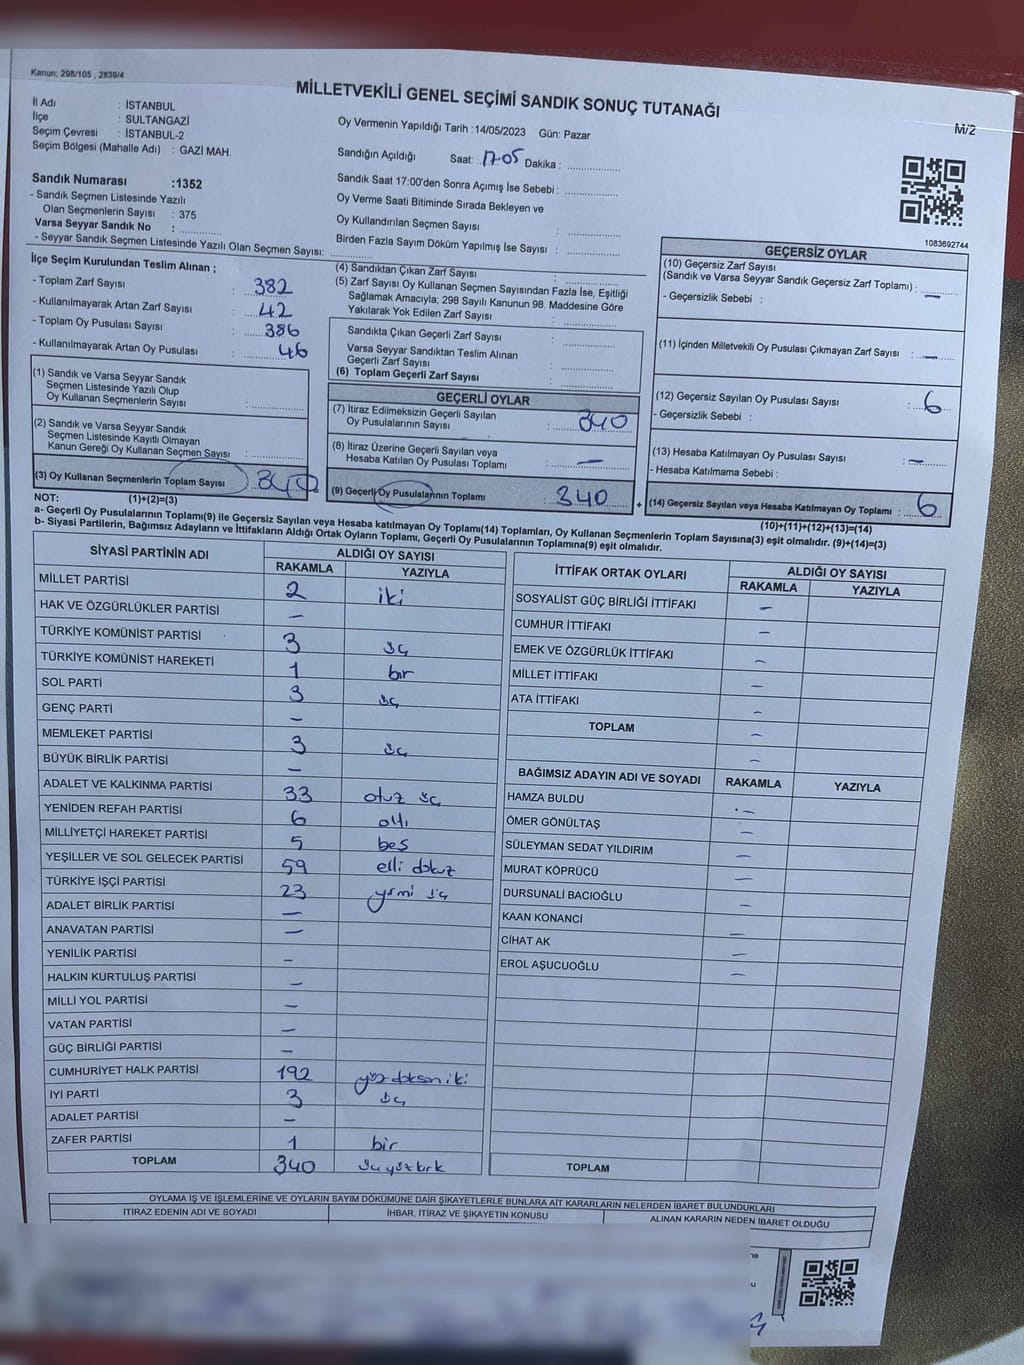 Kanun; 298/105 , 2839/4
MİLLETVEKİLİ GENEL SEÇİMİ SANDIK SONUÇ TUTANAĞI
M/2
İl Adı : İSTANBUL
İlçe : SULTANGAZİ
Seçim Çevresi : İSTANBUL-2
Seçim Bölgesi (Mahalle Adı) : GAZİ MAH.
Sandık Numarası :1352
- Sandık Seçmen Listesinde Yazılı
Olan Seçmenlerin Sayısı : 375
Varsa Seyyar Sandık No : ............
- Seyyar Sandık Seçmen Listesinde Yazılı Olan Seçmen Sayısı: ............
Oy Vermenin Yapıldığı Tarih :14/05/2023 Gün: Pazar
Sandığın Açıldığı Saat: 17-05 Dakika : ............
Sandık Saat 17:00'den Sonra Açımış İse Sebebi : ............
Oy Verme Saati Bitiminde Sırada Bekleyen ve
Oy Kullandırılan Seçmen Sayısı : ............
Birden Fazla Sayım Döküm Yapılmış İse Sayısı : ............
1083692744
İlçe Seçim Kurulundan Teslim Alınan ;
- Toplam Zarf Sayısı : 382
- Kullanılmayarak Artan Zarf Sayısı : 42
- Toplam Oy Pusulası Sayısı : 386
- Kullanılmayarak Artan Oy Pusulası : 46
(1) Sandık ve Varsa Seyyar Sandık
Seçmen Listesinde Yazılı Olup
Oy Kullanan Seçmenlerin Sayısı : ............
(2) Sandık ve Varsa Seyyar Sandık
Seçmen Listesinde Kayıtlı Olmayan
Kanun Gereği Oy Kullanan Seçmen Sayısı : ............
(3) Oy Kullanan Seçmenlerin Toplam Sayısı
(4) Sandıktan Çıkan Zarf Sayısı : ............
(5) Zarf Sayısı Oy Kullanan Seçmen Sayısından Fazla İse, Eşitliği
Sağlamak Amacıyla, 298 Sayılı Kanunun 98. Maddesine Göre
Yakılarak Yok Edilen Zarf Sayısı : ............
Sandıkta Çıkan Geçerli Zarf Sayısı : ............
Varsa Seyyar Sandıktan Teslim Alınan
Geçerli Zarf Sayısı : ............
(6) Toplam Geçerli Zarf Sayısı : ............
GEÇERLİ OYLAR
(7) İtiraz Edilmeksizin Geçerli Sayılan
Oy Pusulalarının Sayısı : 340
(8) İtiraz Üzerine Geçerli Sayılan veya
Hesaba Katılan Oy Pusulası Toplamı : —
(9) Geçerli Oy Pusulalarının Toplamı : 340 +
GEÇERSİZ OYLAR
(10) Geçersiz Zarf Sayısı
(Sandık ve Varsa Seyyar Sandık Geçersiz Zarf Toplamı) : —
- Geçersizlik Sebebi :
(11) İçinden Milletvekili Oy Pusulası Çıkmayan Zarf Sayısı : —
(12) Geçersiz Sayılan Oy Pusulası Sayısı : 6
- Geçersizlik Sebebi :
(13) Hesaba Katılmayan Oy Pusulası Sayısı : —
- Hesaba Katılmama Sebebi :
(14) Geçersiz Sayılan veya Hesaba Katılmayan Oy Toplamı : 6
NOT: (1)+(2)=(3)
(10)+(11)+(12)+(13)=(14)
a- Geçerli Oy Pusulalarının Toplamı(9) ile Geçersiz Sayılan veya Hesaba katılmayan Oy Toplamı(14) Toplamları, Oy Kullanan Seçmenlerin Toplam Sayısına(3) eşit olmalıdır. (9)+(14)=(3)
b- Siyasi Partilerin, Bağımsız Adayların ve İttifakların Aldığı Ortak Oyların Toplamı, Geçerli Oy Pusulalarının Toplamına(9) eşit olmalıdır.
SİYASİ PARTİNİN ADI ALDIĞI OY SAYISI
RAKAMLA YAZIYLA
MİLLET PARTİSİ 2 iki
HAK VE ÖZGÜRLÜKLER PARTİSİ —
TÜRKİYE KOMÜNİST PARTİSİ 3 üç
TÜRKİYE KOMÜNİST HAREKETİ 1 bir
SOL PARTİ 3 üç
GENÇ PARTİ —
MEMLEKET PARTİSİ 3 üç
BÜYÜK BİRLİK PARTİSİ —
ADALET VE KALKINMA PARTİSİ 33 otuz üç
YENİDEN REFAH PARTİSİ 6 altı
MİLLİYETÇİ HAREKET PARTİSİ 5 beş
YEŞİLLER VE SOL GELECEK PARTİSİ 59 elli dokuz
TÜRKİYE İŞÇİ PARTİSİ 23 yirmi üç
ADALET BİRLİK PARTİSİ —
ANAVATAN PARTİSİ —
YENİLİK PARTİSİ —
HALKIN KURTULUŞ PARTİSİ —
MİLLİ YOL PARTİSİ —
VATAN PARTİSİ —
GÜÇ BİRLİĞİ PARTİSİ —
CUMHURİYET HALK PARTİSİ 192 yüz doksan iki
İYİ PARTİ 3 üç
ADALET PARTİSİ —
ZAFER PARTİSİ 1 bir
TOPLAM 340 üç yüz kırk
İTTİFAK ORTAK OYLARI ALDIĞI OY SAYISI
RAKAMLA YAZIYLA
SOSYALİST GÜÇ BİRLİĞİ İTTİFAKI —
CUMHUR İTTİFAKI —
EMEK VE ÖZGÜRLÜK İTTİFAKI —
MİLLET İTTİFAKI —
ATA İTTİFAKI —
TOPLAM —
—
BAĞIMSIZ ADAYIN ADI VE SOYADI RAKAMLA YAZIYLA
HAMZA BULDU —
ÖMER GÖNÜLTAŞ —
SÜLEYMAN SEDAT YILDIRIM —
MURAT KÖPRÜCÜ —
DURSUNALİ BACIOĞLU —
KAAN KONANCİ —
CİHAT AK —
EROL AŞUCUOĞLU —
TOPLAM
OYLAMA İŞ VE İŞLEMLERİNE VE OYLARIN SAYIM DÖKÜMÜNE DAİR ŞİKAYETLERLE BUNLARA AİT KARARLARIN NELERDEN İBARET BULUNDUKLARI
İTİRAZ EDENİN ADI VE SOYADI İHBAR, İTİRAZ VE ŞİKAYETİN KONUSU ALINAN KARARIN NEDEN İBARET OLDUĞU